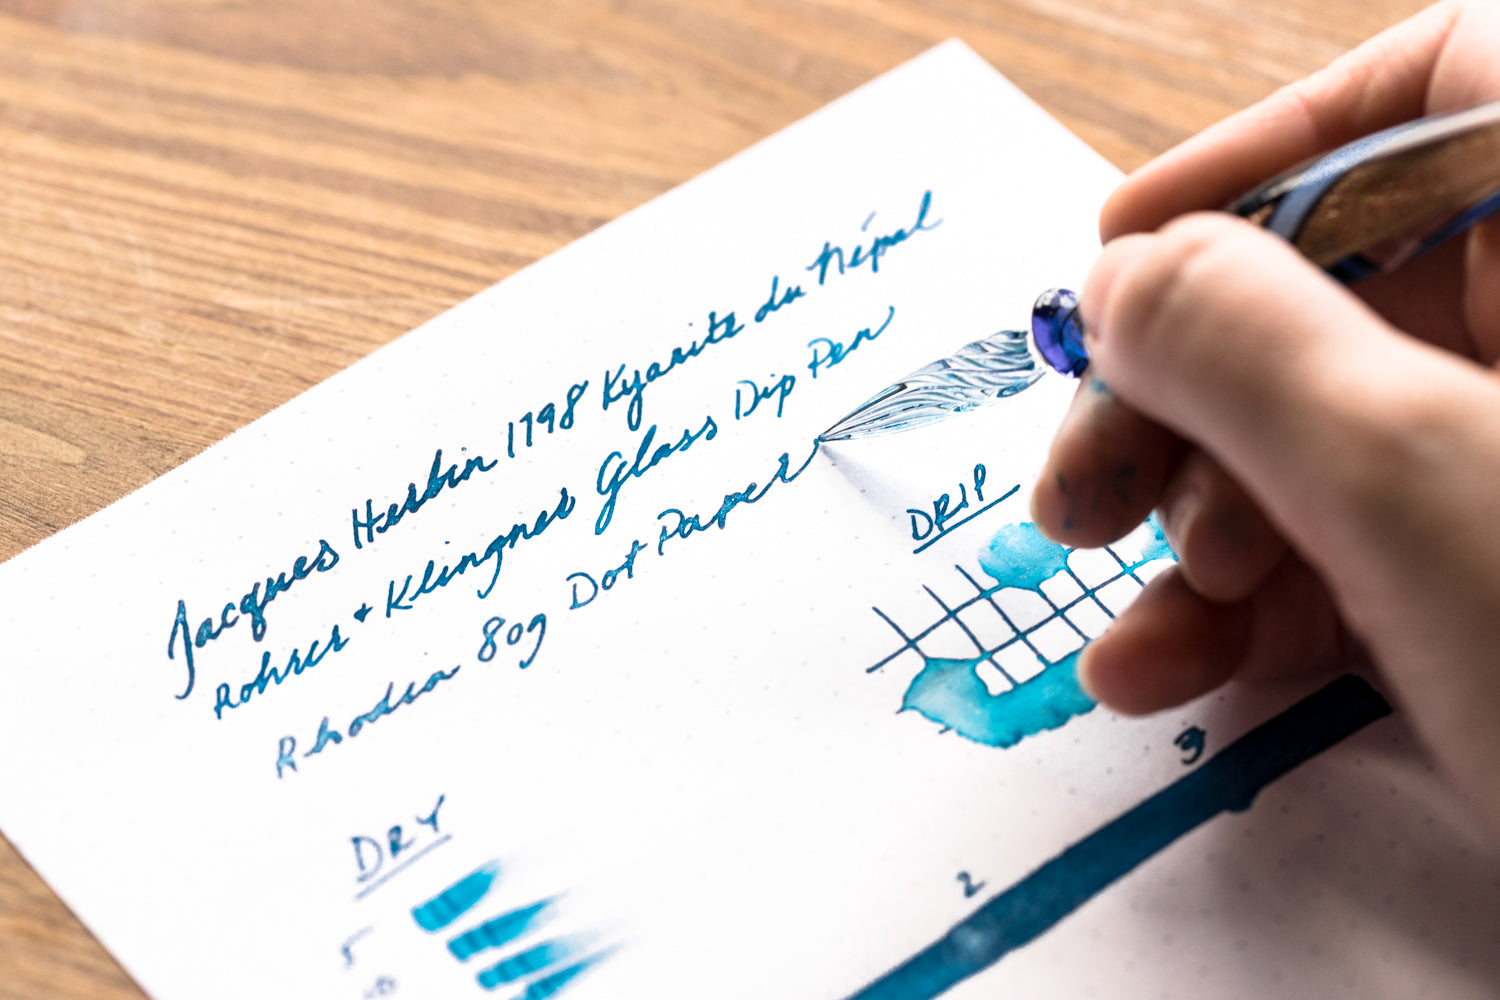 Jacques Herbin 1798 Kyanite du Népal
Rohrer + Klingner Glass Dip Pen
Rhodia 80g Dot Paper
DRIP
3
DRY
2
5
10